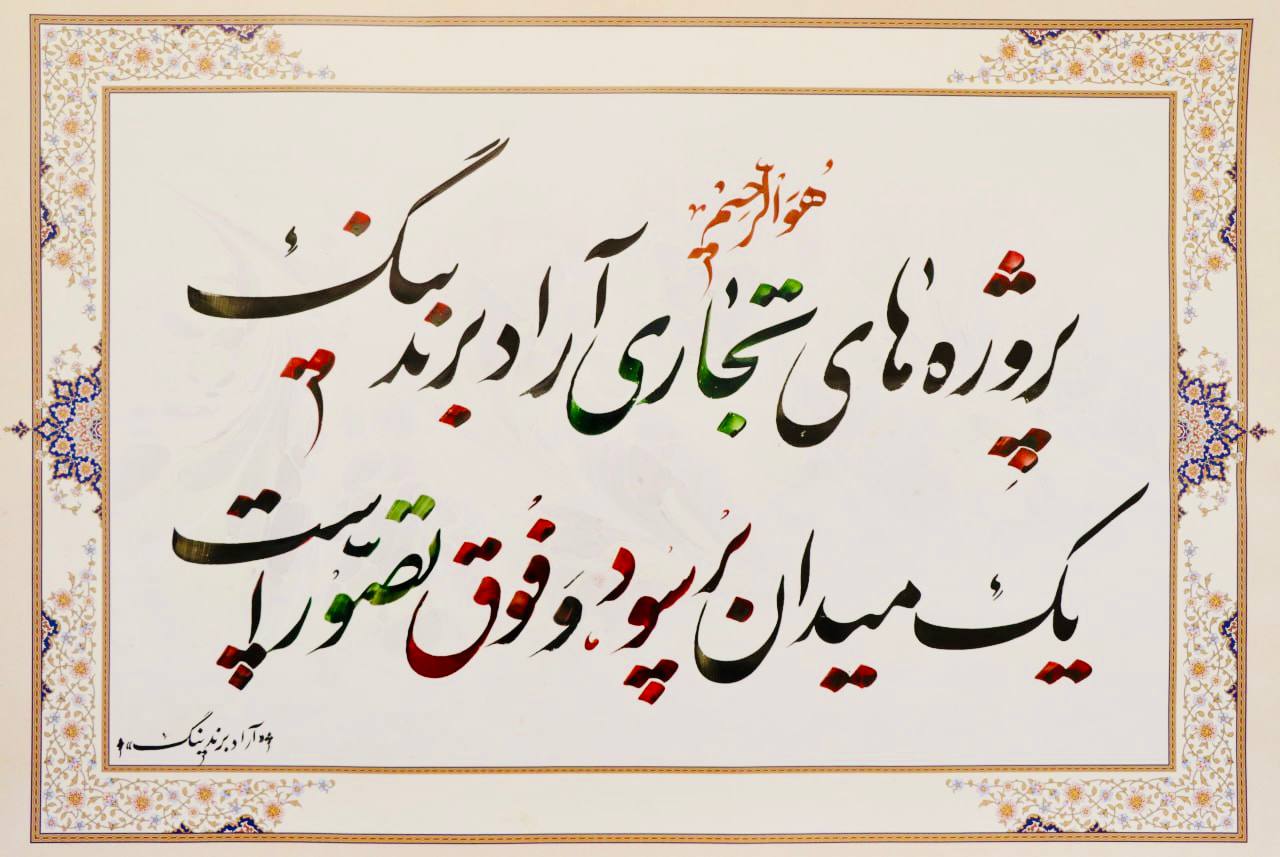 هُوَ الرَّحِیْم
پروژه های تجاری آراد برندینگ
یک میدان پُرسُود وَ فُوق تصّور است
«آراد برندینگ»